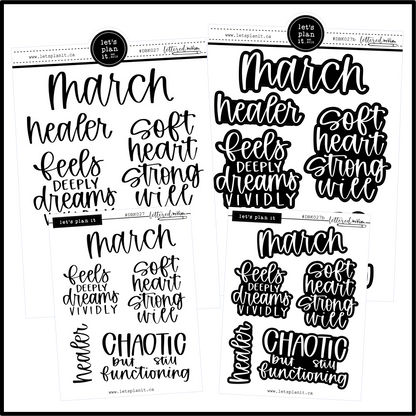 let's
plan
it.
www.letsplanit.ca
#DBK027
lettered
march
healer
feels
DEEPLY
dreams
VIVIDLY
soft
heart
strong
will
let's
plan
it.
www.letsplanit.ca
#DBK027b
lettered
march
healer
feels
DEEPLY
dreams
VIVIDLY
soft
heart
strong
will
let's plan it
#DBK027
lettered
march
feels
DEEPLY
dreams
VIVIDLY
soft
heart
strong
will
healer
CHAOTIC
but still
functioning
www.letsplanit.ca
let's plan it
#DBK027b
lettered
march
feels
DEEPLY
dreams
VIVIDLY
soft
heart
strong
will
healer
CHAOTIC
but still
functioning
www.letsplanit.ca